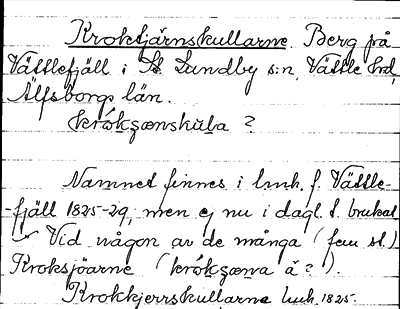 Kroktjärnskullarne. Berg på
Vättlefjäll i St. Lundby s:n, Vättle hrd,
Älfsborgs län.
krókʒœnskula ?
Namnet finnes i lmh. f. Vättle-
-fjäll 1825-29, men ej nu i dagl. t. brukat
Vid någon av de många (fem st.)
Kroksjöarne (krókʒœna å ? ).
Krokkjerrskullarne lmh. 1825.